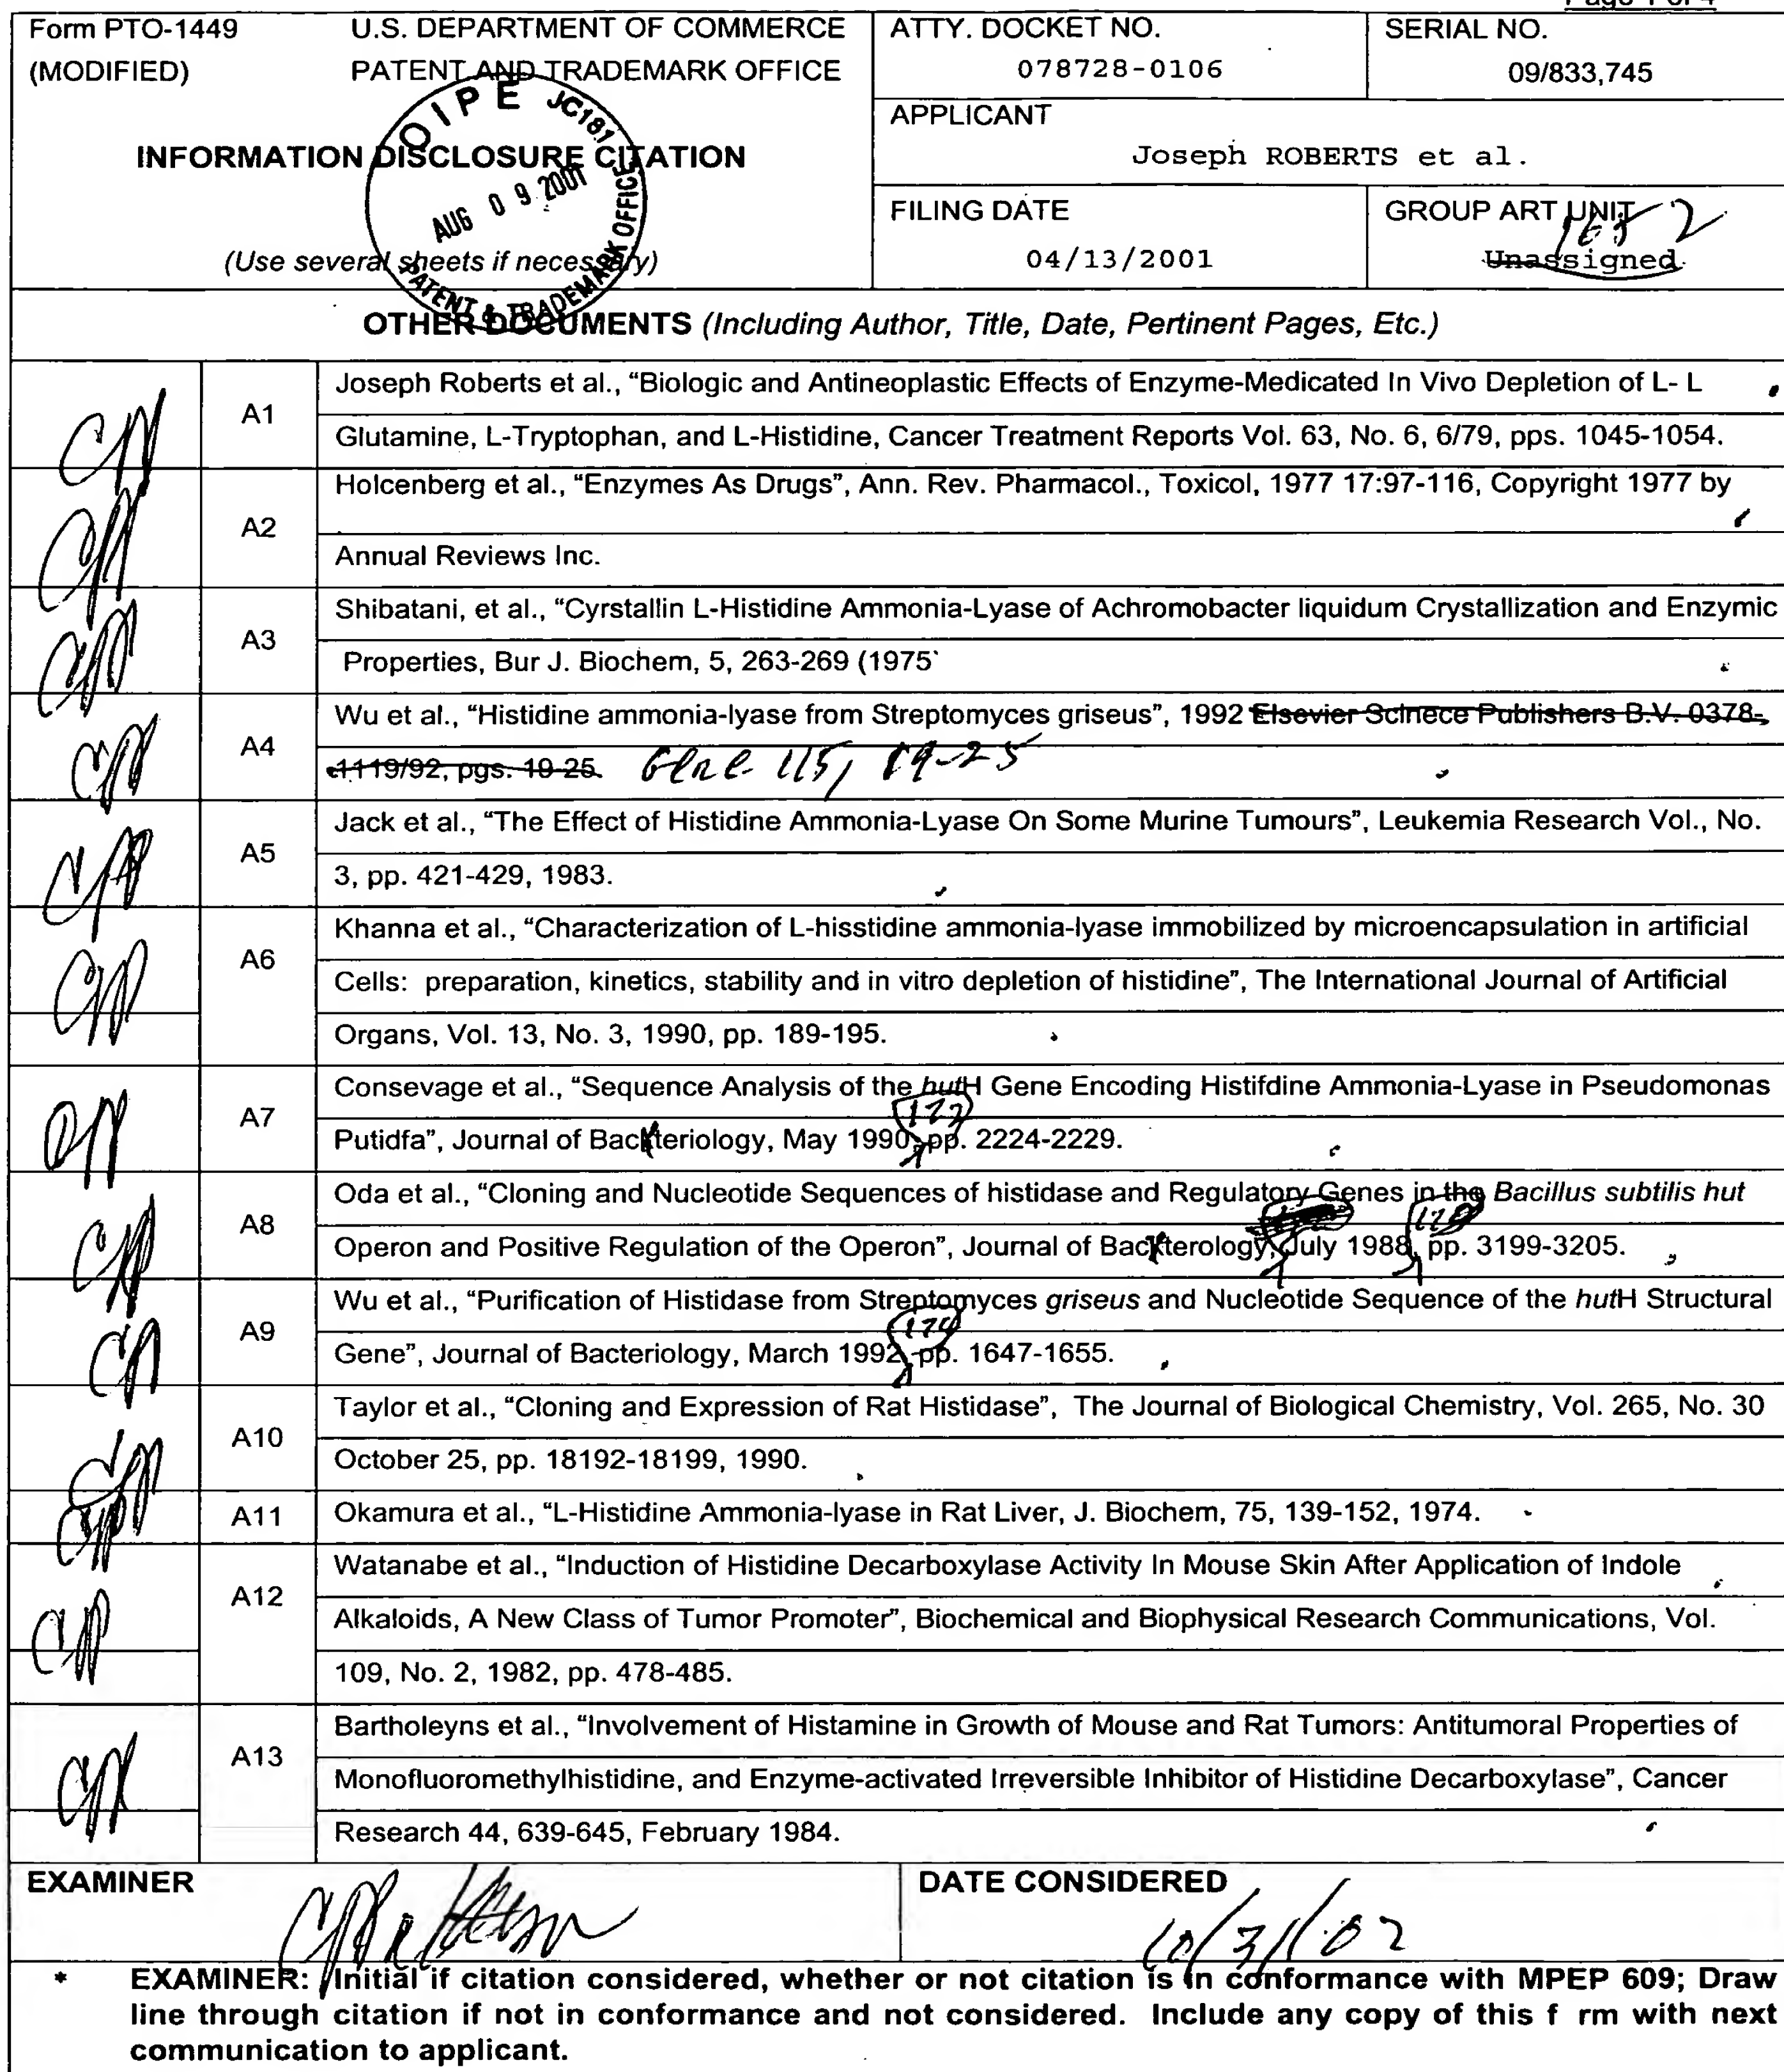 Page 1 of 4
Form PTO-1449 U.S. DEPARTMENT OF COMMERCE
(MODIFIED) PATENT AND TRADEMARK OFFICE
ATTY. DOCKET NO.
078728-0106
SERIAL NO.
09/833,745
OIPE JC181
AUG 09 2001
PATENT & TRADEMARK OFFICE
INFORMATION DISCLOSURE CITATION
(Use several sheets if necessary)
APPLICANT
Joseph ROBERTS et al.
FILING DATE
04/13/2001
GROUP ART UNIT
1652
Unassigned
OTHER DOCUMENTS (Including Author, Title, Date, Pertinent Pages, Etc.)
A1
Joseph Roberts et al., “Biologic and Antineoplastic Effects of Enzyme-Medicated In Vivo Depletion of L- L
Glutamine, L-Tryptophan, and L-Histidine, Cancer Treatment Reports Vol. 63, No. 6, 6/79, pps. 1045-1054.
A2
Holcenberg et al., “Enzymes As Drugs”, Ann. Rev. Pharmacol., Toxicol, 1977 17:97-116, Copyright 1977 by
Annual Reviews Inc.
A3
Shibatani, et al., “Cyrstallin L-Histidine Ammonia-Lyase of Achromobacter liquidum Crystallization and Enzymic
Properties, Bur J. Biochem, 5, 263-269 (1975
A4
Wu et al., “Histidine ammonia-lyase from Streptomyces griseus”, 1992 Elsevier Scinece Publishers B.V. 0378-
1119/92, pgs. 19-25. Gene 115, 19-25
A5
Jack et al., “The Effect of Histidine Ammonia-Lyase On Some Murine Tumours”, Leukemia Research Vol., No.
3, pp. 421-429, 1983.
A6
Khanna et al., “Characterization of L-hisstidine ammonia-lyase immobilized by microencapsulation in artificial
Cells: preparation, kinetics, stability and in vitro depletion of histidine”, The International Journal of Artificial
Organs, Vol. 13, No. 3, 1990, pp. 189-195.
A7
Consevage et al., “Sequence Analysis of the hutH Gene Encoding Histifdine Ammonia-Lyase in Pseudomonas
Putidfa”, Journal of Backteriology, May 1990, pp. 2224-2229.
A8
Oda et al., “Cloning and Nucleotide Sequences of histidase and Regulatory Genes in the Bacillus subtilis hut
Operon and Positive Regulation of the Operon”, Journal of Backterology, July 1988, pp. 3199-3205.
A9
Wu et al., “Purification of Histidase from Streptomyces griseus and Nucleotide Sequence of the hutH Structural
174
Gene”, Journal of Bacteriology, March 1992, pp. 1647-1655.
A10
Taylor et al., “Cloning and Expression of Rat Histidase”, The Journal of Biological Chemistry, Vol. 265, No. 30
October 25, pp. 18192-18199, 1990.
A11
Okamura et al., “L-Histidine Ammonia-lyase in Rat Liver, J. Biochem, 75, 139-152, 1974.
A12
Watanabe et al., “Induction of Histidine Decarboxylase Activity In Mouse Skin After Application of Indole
Alkaloids, A New Class of Tumor Promoter”, Biochemical and Biophysical Research Communications, Vol.
109, No. 2, 1982, pp. 478-485.
A13
Bartholeyns et al., “Involvement of Histamine in Growth of Mouse and Rat Tumors: Antitumoral Properties of
Monofluoromethylhistidine, and Enzyme-activated Irreversible Inhibitor of Histidine Decarboxylase”, Cancer
Research 44, 639-645, February 1984.
EXAMINER
DATE CONSIDERED
10/31/02
* EXAMINER: Initial if citation considered, whether or not citation is in conformance with MPEP 609; Draw
line through citation if not in conformance and not considered. Include any copy of this f rm with next
communication to applicant.